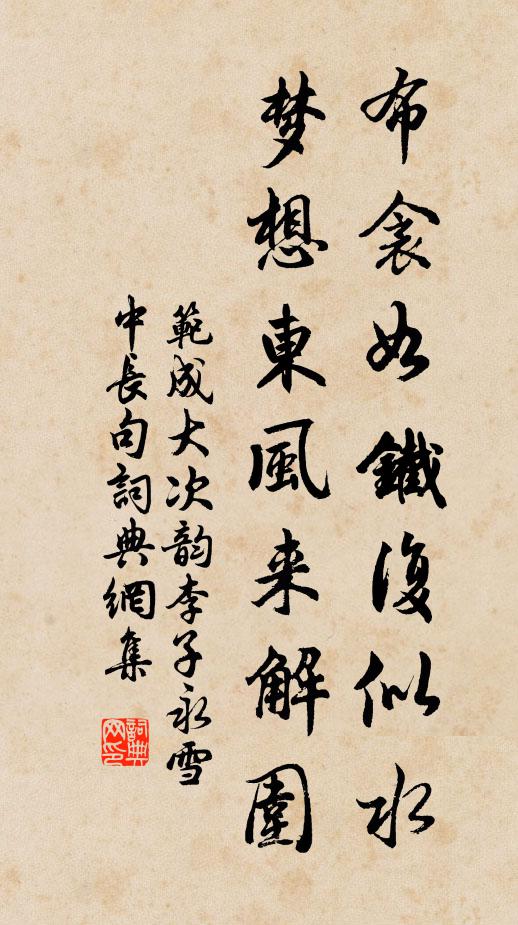 布衾如鐵復似水
梦想東風来解圍
範成大次韵李子永雪
中長句詞典網集
詞典网印